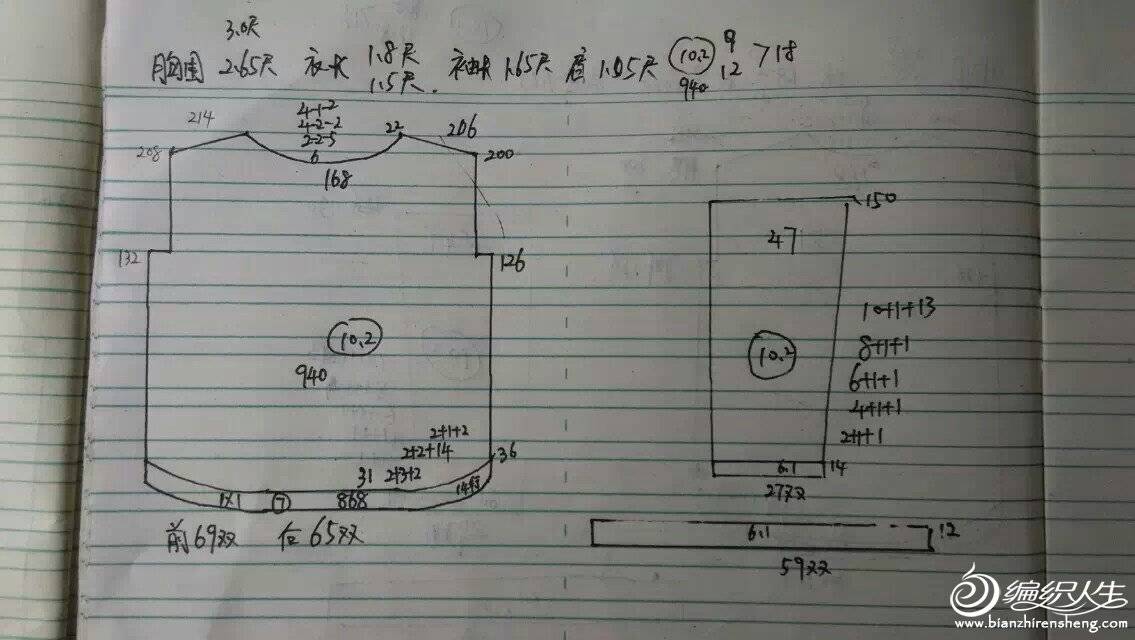 3.0尺
胸围 2.65尺 衣长 1.8尺 袖长 1.65尺 肩 1.05尺 10.2 9 >18
1.5尺. 940 12
4-1-2
214 4-2-2 22 206
2-2-5
208 6 200
168
150
47
132 126
10+1+13
10.2 8+1+1
10.2
940 6+1+1
4+1+1
2+1+2 2+1+1
2+2+14 36
31 2+3+2 6.1 14
1X1 7 868 27双
前69双 后65双 6.1 12
59双
编织人生
www.bianzhirensheng.com